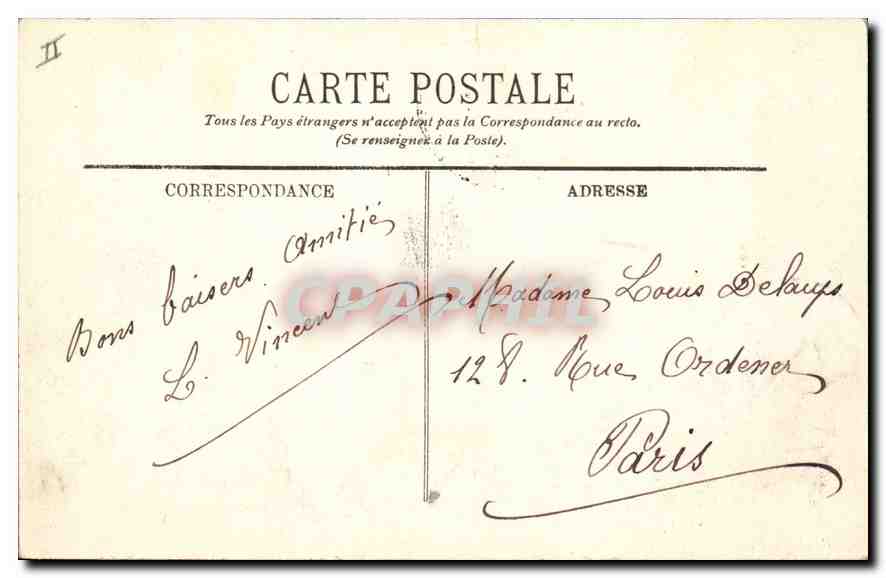 II
CARTE POSTALE
Tous les Pays étrangers n'acceptent pas la Correspondance au recto.
(Se renseigner à la Poste).
CORRESPONDANCE
Bons baisers. Amitiés
L. Vincent
ADRESSE
Madame Louis Delaups
128. Rue Ordener
Paris
CPAPHIL